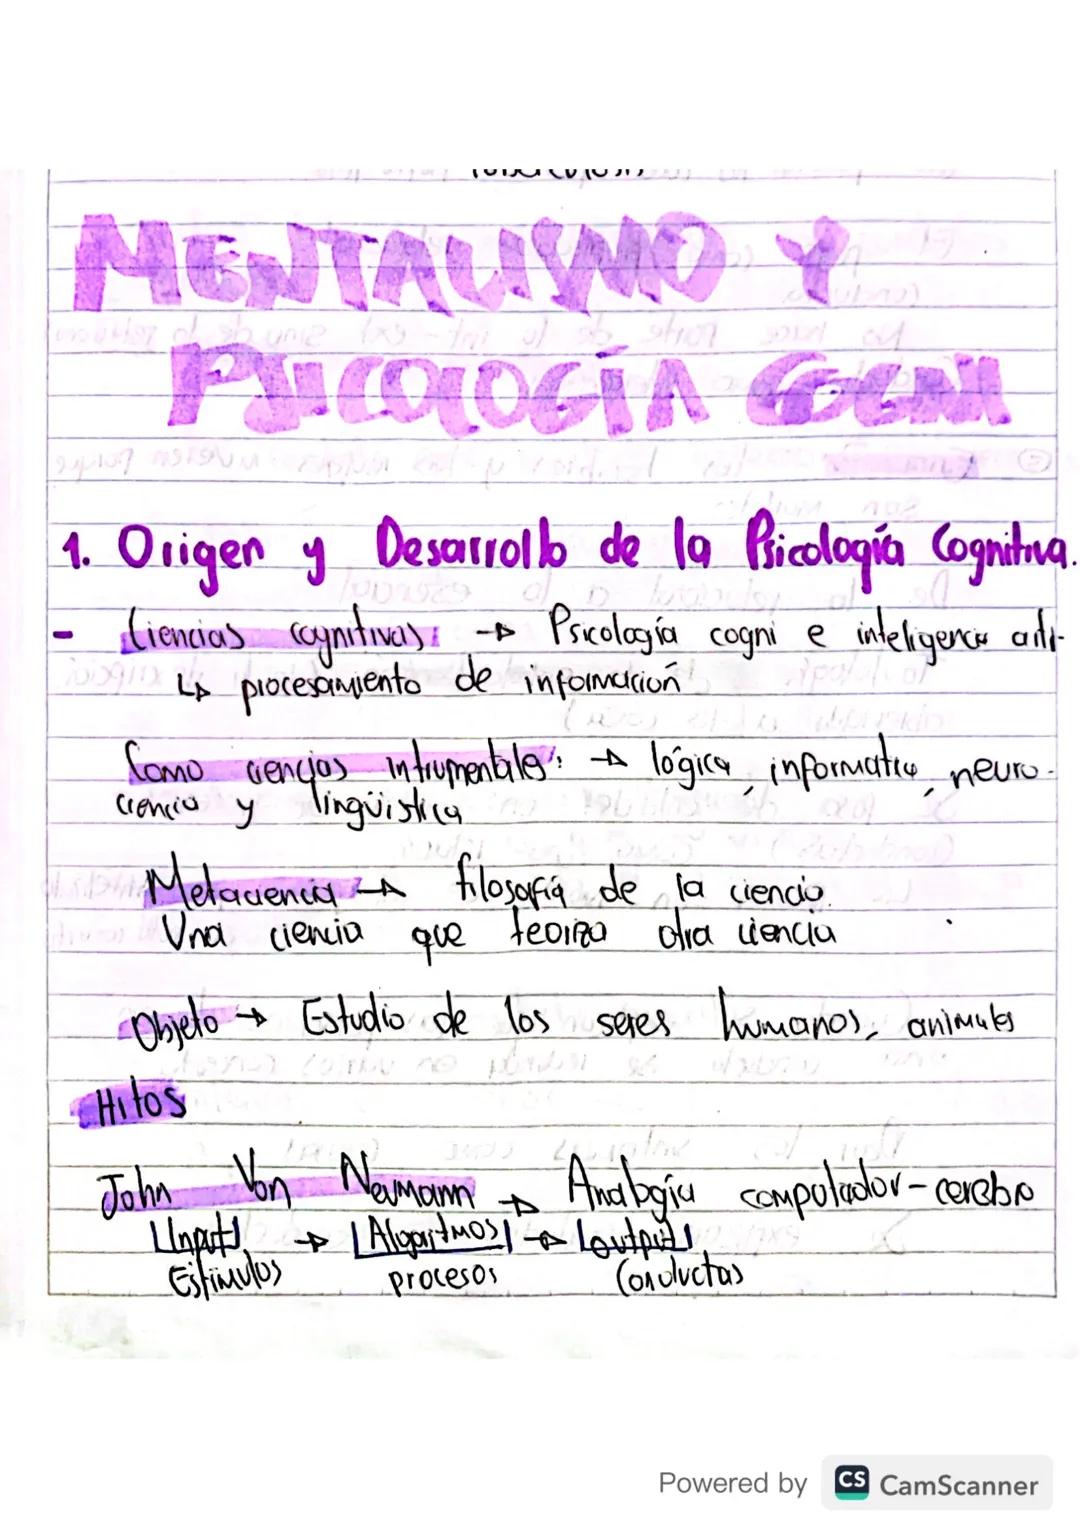 MENTALISMO Y
PSICOLOGÍA COGNI
1. Origen y Desarrollo de la Psicología Cognitiva.
- Ciencias cognitivas: → Psicología cogni e inteligencia arti-
↳ procesamiento de información
Como ciencias intrumentales: → lógica, informatica, neuro-
ciencia y lingüistica
Metaciencia → filosofía de la ciencia.
Una ciencia que teoriza otra ciencia
Objeto → Estudio de los seres humanos, animales
Hitos
John Von Neumann → Analogía computador-cerebro
[Input] → [Algoritmos] → [output]
Estimulos procesos Conductas
Powered by CS CamScanner